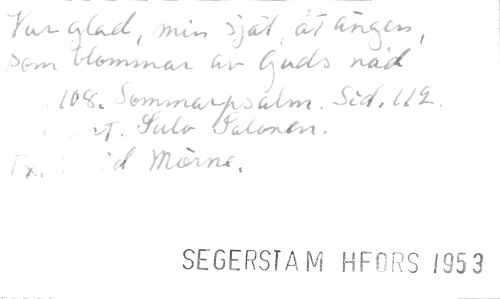 Var glad, min själ, åt ängen,
som blommar av Guds nåd
108. Sommarpsalm. Sid. 112.
Sulo Salonen.
Mörne.
SEGERSTAM HFORS 1953